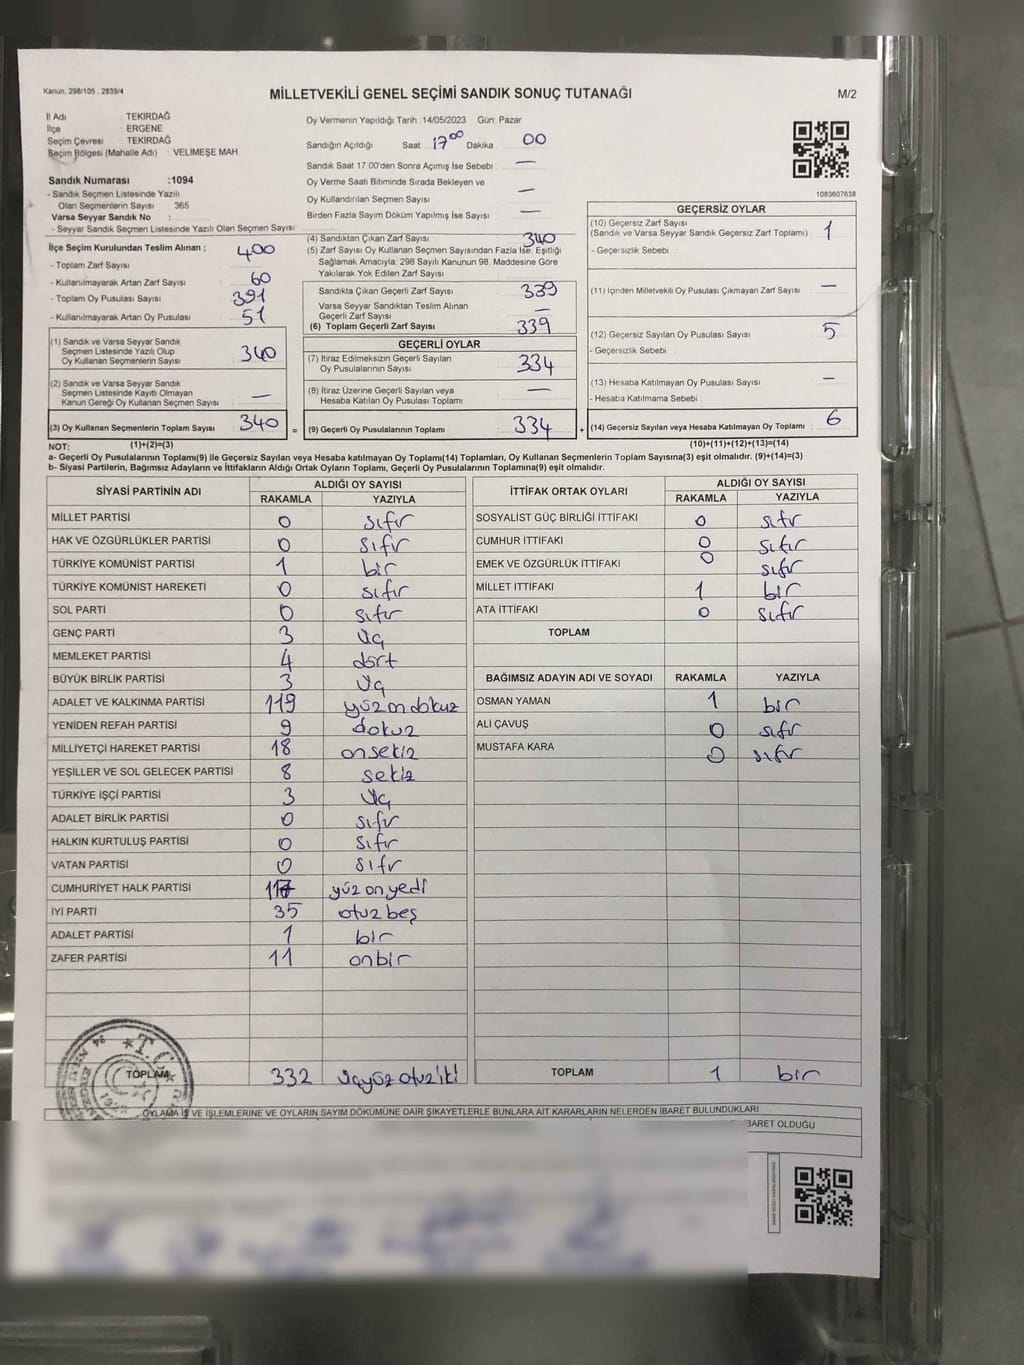 Kanun, 298/105 , 2839/4
MİLLETVEKİLİ GENEL SEÇİMİ SANDIK SONUÇ TUTANAĞI
M/2
İl Adı : TEKİRDAĞ
İlçe : ERGENE
Seçim Çevresi : TEKİRDAĞ
Seçim Bölgesi (Mahalle Adı) : VELİMEŞE MAH.
Oy Vermenin Yapıldığı Tarih :14/05/2023 Gün: Pazar
Sandığın Açıldığı Saat: 17 00 Dakika : 00
Sandık Saat 17.00'den Sonra Açımış İse Sebebi : —
Oy Verme Saati Bitiminde Sırada Bekleyen ve
Oy Kullandırılan Seçmen Sayısı : —
Birden Fazla Sayım Döküm Yapılmış İse Sayısı : —
1083607638
Sandık Numarası :1094
- Sandık Seçmen Listesinde Yazılı
Olan Seçmenlerin Sayısı : 365
Varsa Seyyar Sandık No :
- Seyyar Sandık Seçmen Listesinde Yazılı Olan Seçmen Sayısı :
İlçe Seçim Kurulundan Teslim Alınan ;
- Toplam Zarf Sayısı : 400
- Kullanılmayarak Artan Zarf Sayısı : 60
- Toplam Oy Pusulası Sayısı : 391
- Kullanılmayarak Artan Oy Pusulası : 51
(1) Sandık ve Varsa Seyyar Sandık
Seçmen Listesinde Yazılı Olup
Oy Kullanan Seçmenlerin Sayısı : 340
(2) Sandık ve Varsa Seyyar Sandık
Seçmen Listesinde Kayıtlı Olmayan
Kanun Gereği Oy Kullanan Seçmen Sayısı : —
(3) Oy Kullanan Seçmenlerin Toplam Sayısı : 340 =
(4) Sandıktan Çıkan Zarf Sayısı : 340
(5) Zarf Sayısı Oy Kullanan Seçmen Sayısından Fazla İse, Eşitliği
Sağlamak Amacıyla; 298 Sayılı Kanunun 98. Maddesine Göre
Yakılarak Yok Edilen Zarf Sayısı :
Sandıkta Çıkan Geçerli Zarf Sayısı : 339
Varsa Seyyar Sandıktan Teslim Alınan
Geçerli Zarf Sayısı : —
(6) Toplam Geçerli Zarf Sayısı : 339
GEÇERLİ OYLAR
(7) İtiraz Edilmeksizin Geçerli Sayılan
Oy Pusulalarının Sayısı : 334
(8) İtiraz Üzerine Geçerli Sayılan veya
Hesaba Katılan Oy Pusulası Toplamı : —
(9) Geçerli Oy Pusulalarının Toplamı : 334 +
GEÇERSİZ OYLAR
(10) Geçersiz Zarf Sayısı
(Sandık ve Varsa Seyyar Sandık Geçersiz Zarf Toplamı) : 1
- Geçersizlik Sebebi :
(11) İçinden Milletvekili Oy Pusulası Çıkmayan Zarf Sayısı : —
(12) Geçersiz Sayılan Oy Pusulası Sayısı : 5
- Geçersizlik Sebebi :
(13) Hesaba Katılmayan Oy Pusulası Sayısı : —
- Hesaba Katılmama Sebebi :
(14) Geçersiz Sayılan veya Hesaba Katılmayan Oy Toplamı : 6
NOT: (1)+(2)=(3)
(10)+(11)+(12)+(13)=(14)
a- Geçerli Oy Pusulalarının Toplamı(9) ile Geçersiz Sayılan veya Hesaba katılmayan Oy Toplamı(14) Toplamları, Oy Kullanan Seçmenlerin Toplam Sayısına(3) eşit olmalıdır. (9)+(14)=(3)
b- Siyasi Partilerin, Bağımsız Adayların ve İttifakların Aldığı Ortak Oyların Toplamı, Geçerli Oy Pusulalarının Toplamına(9) eşit olmalıdır.
SİYASİ PARTİNİN ADI
ALDIĞI OY SAYISI
RAKAMLA YAZIYLA
MİLLET PARTİSİ 0 sıfır
HAK VE ÖZGÜRLÜKLER PARTİSİ 0 sıfır
TÜRKİYE KOMÜNİST PARTİSİ 1 bir
TÜRKİYE KOMÜNİST HAREKETİ 0 sıfır
SOL PARTİ 0 sıfır
GENÇ PARTİ 3 Üç
MEMLEKET PARTİSİ 4 dört
BÜYÜK BİRLİK PARTİSİ 3 Üç
ADALET VE KALKINMA PARTİSİ 119 yüzondokuz
YENİDEN REFAH PARTİSİ 9 dokuz
MİLLİYETÇİ HAREKET PARTİSİ 18 onsekiz
YEŞİLLER VE SOL GELECEK PARTİSİ 8 sekiz
TÜRKİYE İŞÇİ PARTİSİ 3 Üç
ADALET BİRLİK PARTİSİ 0 sıfır
HALKIN KURTULUŞ PARTİSİ 0 sıfır
VATAN PARTİSİ 0 sıfır
CUMHURİYET HALK PARTİSİ 117 yüz on yedi
İYİ PARTİ 35 otuz beş
ADALET PARTİSİ 1 bir
ZAFER PARTİSİ 11 onbir
TOPLAM 332 üçyüz otuz iki
İTTİFAK ORTAK OYLARI
ALDIĞI OY SAYISI
RAKAMLA YAZIYLA
SOSYALİST GÜÇ BİRLİĞİ İTTİFAKI 0 sıfır
CUMHUR İTTİFAKI 0 sıfır
EMEK VE ÖZGÜRLÜK İTTİFAKI 0 sıfır
MİLLET İTTİFAKI 1 bir
ATA İTTİFAKI 0 sıfır
TOPLAM
BAĞIMSIZ ADAYIN ADI VE SOYADI RAKAMLA YAZIYLA
OSMAN YAMAN 1 bir
ALİ ÇAVUŞ 0 sıfır
MUSTAFA KARA 0 sıfır
TOPLAM 1 bir
T.C.
OYLAMA İŞ VE İŞLEMLERİNE VE OYLARIN SAYIM DÖKÜMÜNE DAİR ŞİKAYETLERLE BUNLARA AİT KARARLARIN NELERDEN İBARET BULUNDUKLARI
BARET OLDUĞU